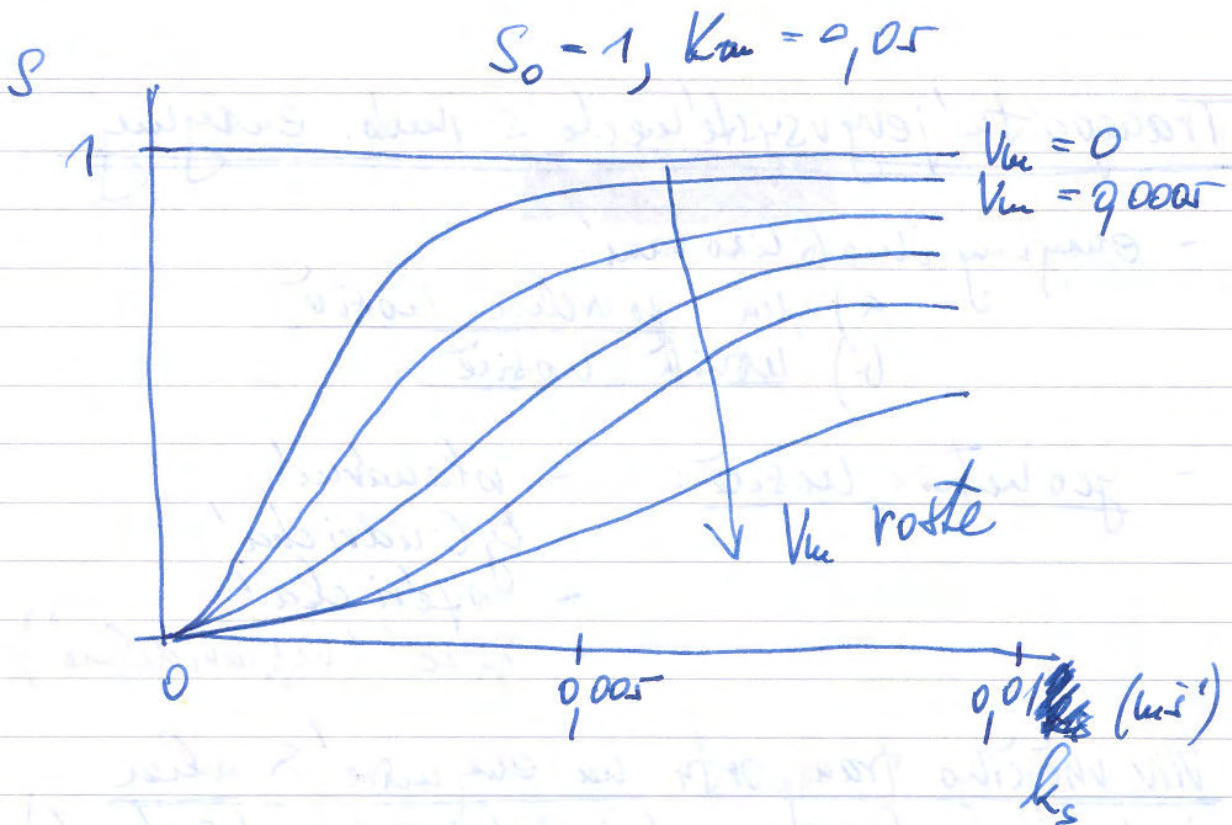 S₀ = 1, Km = 0,05
S
1
Vm = 0
Vm = 0,0005
Vm roste
0
0,005
0,01
(ms⁻¹)
ks